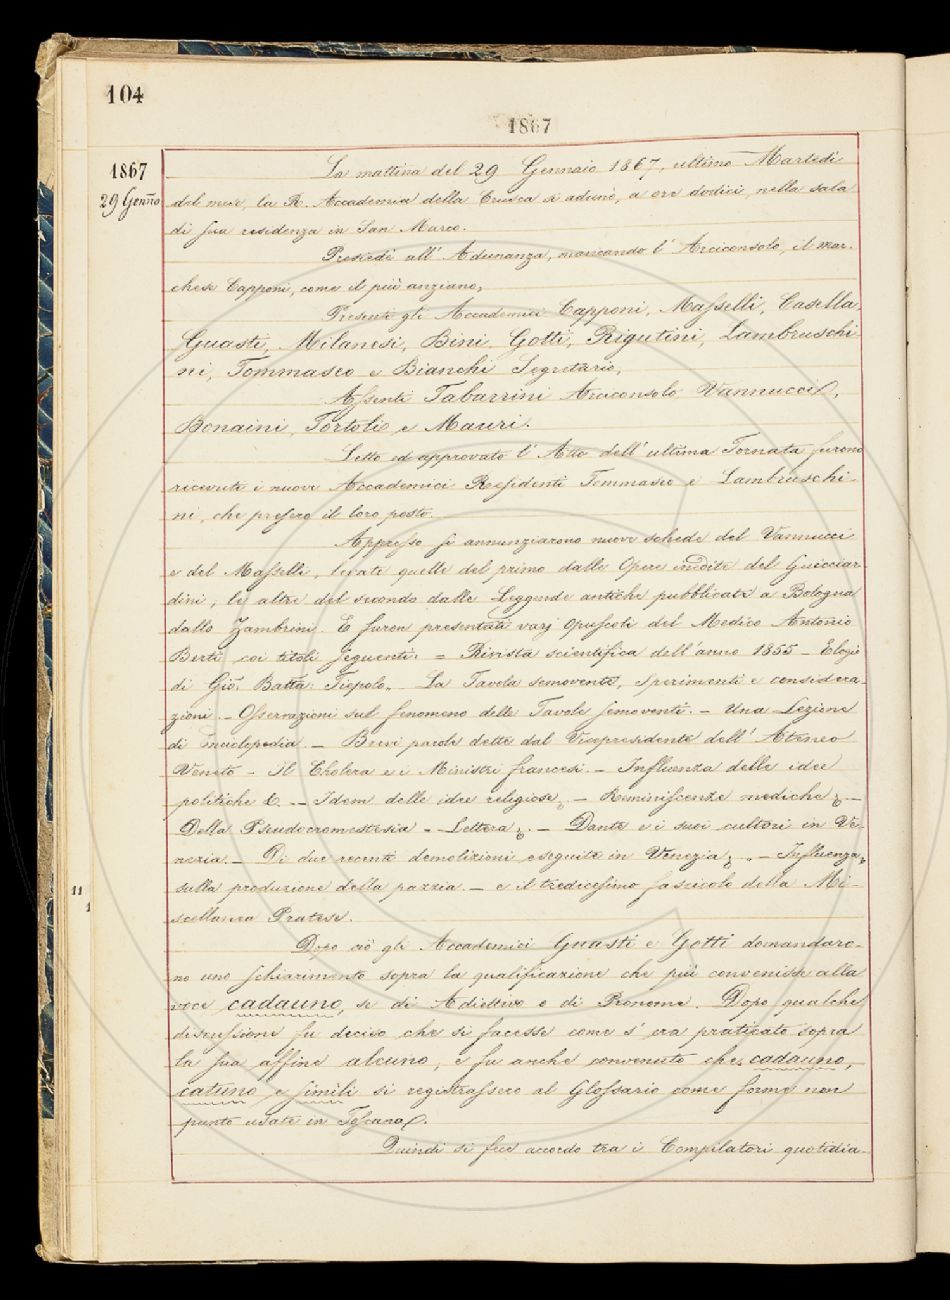 104
1867
1867
29 Genño
La mattina del 29 Gennaio 1867, ultimo Martedì
del mese, la R. Accademia della Crusca si adunò, a ore dodici, nella sala
di sua residenza in San Marco.
Presedè all' Adunanza, mancando l' Arciconsolo, il mar-
chese Capponi, come il più anziano,
Presenti gli Accademici Capponi, Masselli, Casella,
Guasti, Milanesi, Bini, Gotti, Rigutini, Lambruschi-
ni, Tommaseo e Bianchi Segretario,
Assenti Tabarrini Arciconsolo Vannucci,
Bonaini, Tortoli e Mauri.
Letto ed approvato l' Atto dell' ultima Tornata furono
ricevuti i nuovi Accademici Residenti Tommaseo e Lambruschi-
ni, che presero il loro posto.
Appresso si annunziarono nuove schede del Vannucci
e del Masselli, levate quelle del primo dalle Opere inedite del Guicciar
dini, le altre del secondo dalle Leggende antiche pubblicate a Bologna
dallo Zambrini. E furon presentati varj Opuscoli del Medico Antonio
Berti coi titoli seguenti: = Rivista scientifica dell'anno 1855 - Elogio
di Gio. Batta: Tiepolo,, - La Tavola semovente, Sperimenti e considera-
zioni. - Osservazioni sul fenomeno delle Tavole semoventi. - Una Lezione
di Enciclopedia. - Brevi parole dette dal Vicepresidente dell' Ateneo
Veneto - Il Cholera e i Ministri francesi. - Influenza delle idee
politiche &. - Idem delle idee religiose, - Reminiscenze mediche, -
Della Pseudocromestesia - Lettera, - Dante e i suoi cultori in Ve-
nezia. - Di due recenti demolizioni eseguite in Venezia, - Influenza,
sulla produzione della pazzia. - e il tredicesimo fascicolo della Mi-
11
1
scellanea Pratese.
Dopo ciò gli Accademici Guasti e Gotti domandaro-
no uno schiarimento sopra la qualificazione che più convenisse alla
voce cadauno, se di Adiettivo o di Pronome. Dopo qualche
discussione fu deciso che si facesse come s' era praticato sopra
la sua affine alcuno, e fu anche convenuto che cadauno,
catuno e simili si registrassero al Glossario come forme non
punto usate in Toscana.
Quindi si fece accordo tra i Compilatori quotidia-